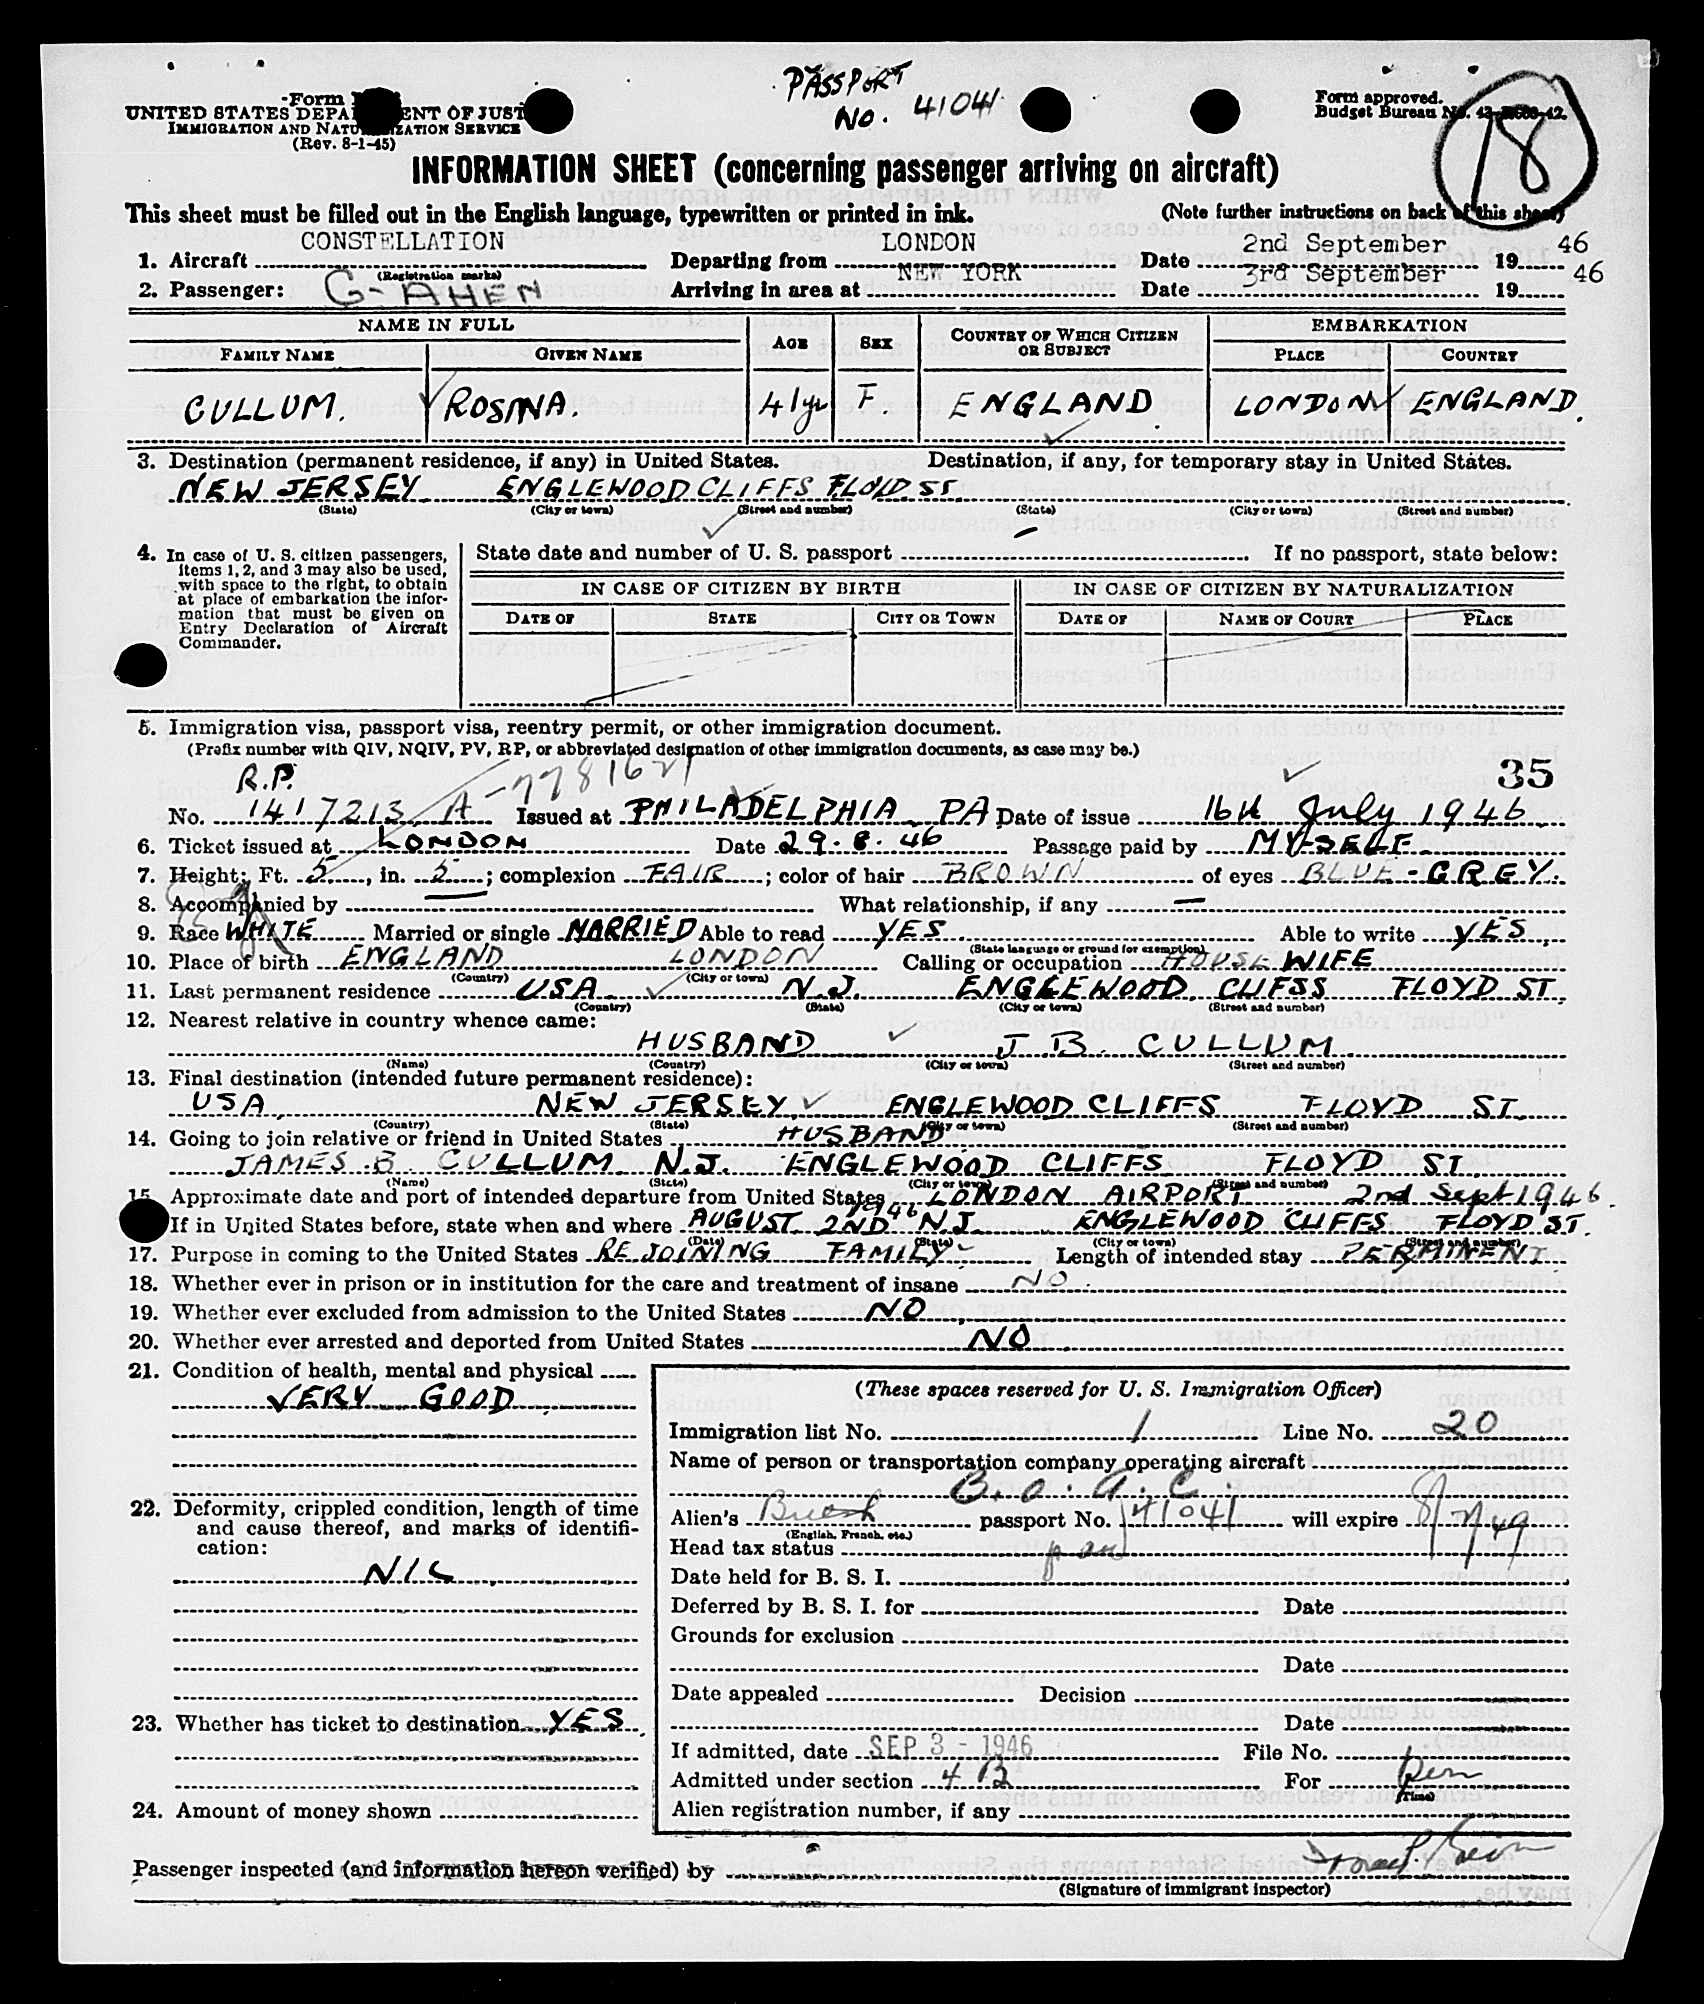 PASSPORT
No. 41041
Form
UNITED STATES DEPARTMENT OF JUSTICE
IMMIGRATION AND NATURALIZATION SERVICE
(Rev. 8-1-45)
Form approved.
Budget Bureau No. 43-
18
INFORMATION SHEET (concerning passenger arriving on aircraft)
This sheet must be filled out in the English language, typewritten or printed in ink. (Note further instructions on back of this sheet)
1. Aircraft CONSTELLATION Departing from LONDON Date 2nd September 1946
(Registration marks)
2. Passenger: G-AHEN Arriving in area at NEW YORK Date 3rd September 1946
NAME IN FULL AGE SEX COUNTRY OF WHICH CITIZEN OR SUBJECT EMBARKATION
FAMILY NAME GIVEN NAME PLACE COUNTRY
CULLUM. ROSINA. 41 yr F ENGLAND LONDON ENGLAND.
3. Destination (permanent residence, if any) in United States. Destination, if any, for temporary stay in United States.
NEW JERSEY ENGLEWOOD CLIFFS FLOYD ST.
(State) (City or town) (Street and number) (State) (City or town) (Street and number)
4. In case of U. S. citizen passengers, items 1, 2, and 3 may also be used, with space to the right, to obtain at place of embarkation the information that must be given on Entry Declaration of Aircraft Commander.
State date and number of U. S. passport If no passport, state below:
IN CASE OF CITIZEN BY BIRTH IN CASE OF CITIZEN BY NATURALIZATION
DATE OF STATE CITY OR TOWN DATE OF NAME OF COURT PLACE
5. Immigration visa, passport visa, reentry permit, or other immigration document.
(Prefix number with QIV, NQIV, PV, RP, or abbreviated designation of other immigration documents, as case may be.)
R.P. A-7781621 35
No. 1417213 Issued at PHILADELPHIA PA Date of issue 16th July 1946
6. Ticket issued at LONDON Date 29.8.46 Passage paid by MYSELF
7. Height: Ft. 5, in. 5; complexion FAIR; color of hair BROWN of eyes BLUE-GREY.
8. Accompanied by — What relationship, if any —
9. Race WHITE Married or single MARRIED Able to read YES Able to write YES
(State language or ground for exemption)
10. Place of birth ENGLAND LONDON Calling or occupation HOUSE WIFE
(Country) (City or town)
11. Last permanent residence USA N.J. ENGLEWOOD CLIFSS FLOYD ST.
(Country) (State) (City or town) (Street and number)
12. Nearest relative in country whence came:
HUSBAND J. B. CULLUM
(Name) (Country) (City or town) (Street and number)
13. Final destination (intended future permanent residence):
USA, NEW JERSEY ENGLEWOOD CLIFFS FLOYD ST.
(Country) (State) (City or town) (Street and number)
14. Going to join relative or friend in United States HUSBAND
JAMES B. CULLUM N.J. ENGLEWOOD CLIFFS FLOYD ST.
(Name) (State) (City or town) (Street and number)
15. Approximate date and port of intended departure from United States LONDON AIRPORT 2nd Sept 1946.
If in United States before, state when and where AUGUST 2ND 1946 N.J. ENGLEWOOD CLIFFS FLOYD ST.
(Date) (State) (City or town) (Street and number)
17. Purpose in coming to the United States REJOINING FAMILY Length of intended stay PERMINENT
18. Whether ever in prison or in institution for the care and treatment of insane NO.
19. Whether ever excluded from admission to the United States NO
20. Whether ever arrested and deported from United States NO
21. Condition of health, mental and physical
VERY GOOD
22. Deformity, crippled condition, length of time and cause thereof, and marks of identification:
NIL
23. Whether has ticket to destination YES
24. Amount of money shown
(These spaces reserved for U. S. Immigration Officer)
Immigration list No. 1 Line No. 20
Name of person or transportation company operating aircraft
B.O.A.C.
Alien's British passport No. 41041 will expire 8/7/49
(English, French, etc.)
Head tax status
Date held for B. S. I.
Deferred by B. S. I. for Date
Grounds for exclusion
Date
Date appealed Decision
Date
If admitted, date SEP 3 - 1946 File No.
Admitted under section 4 B For Perm
(Time)
Alien registration number, if any
Passenger inspected (and information hereon verified) by
(Signature of immigrant inspector)